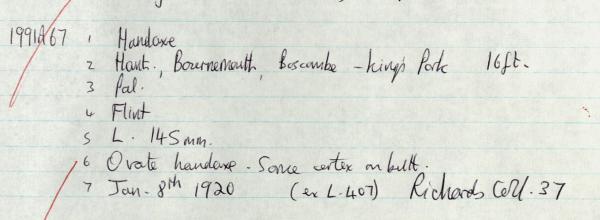 1991A67 1 Handaxe
2 Hants., Bournemouth, Boscombe - King's Park 16ft.
3 Pal.
4 Flint
5 L. 145mm.
6 Ovate handaxe. Some cortex on butt.
7 Jan. 8th 1920 (ex L.407) Richards Coll. 37